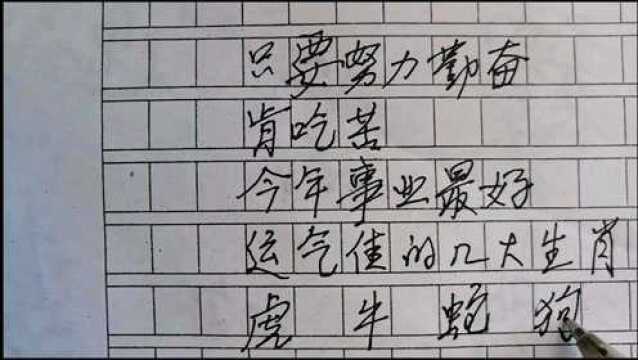 只要努力勤奋
肯吃苦
今年事业最好
运气佳的几大生肖
虎 牛 蛇 狗